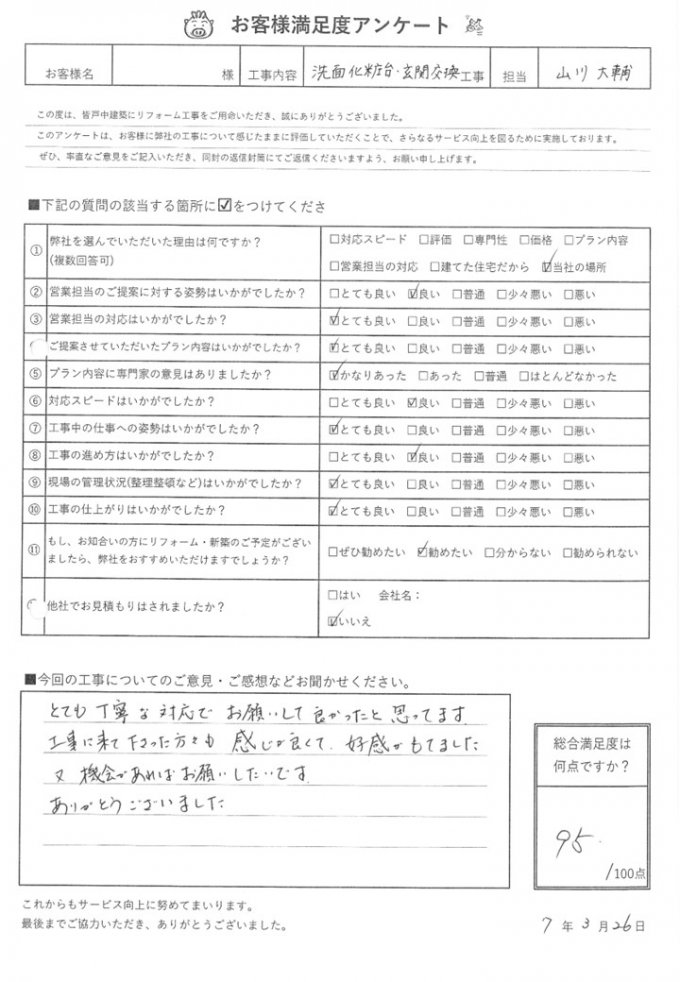 お客様満足度アンケート
お客様名 様 工事内容 洗面化粧台・玄関交換工事 担当 山川 大輔
この度は、皆戸中建築にリフォーム工事をご用命いただき、誠にありがとうございました。
このアンケートは、お客様に弊社の工事について感じたままに評価していただくことで、さらなるサービス向上を図るために実施しております。
ぜひ、率直なご意見をご記入いただき、同封の返信封筒にてご返信くださいますよう、お願い申し上げます。
■下記の質問の該当する箇所に☑をつけてくださ
① 弊社を選んでいただいた理由は何ですか？
(複数回答可)
□対応スピード □評価 □専門性 □価格 □プラン内容
□営業担当の対応 □建てた住宅だから ☑当社の場所
② 営業担当のご提案に対する姿勢はいかがでしたか？ □とても良い ☑良い □普通 □少々悪い □悪い
③ 営業担当の対応はいかがでしたか？ ☑とても良い □良い □普通 □少々悪い □悪い
ご提案させていただいたプラン内容はいかがでしたか？ ☑とても良い □良い □普通 □少々悪い □悪い
⑤ プラン内容に専門家の意見はありましたか？ ☑かなりあった □あった □普通 □ほとんどなかった
⑥ 対応スピードはいかがでしたか？ □とても良い ☑良い □普通 □少々悪い □悪い
⑦ 工事中の仕事への姿勢はいかがでしたか？ ☑とても良い □良い □普通 □少々悪い □悪い
⑧ 工事の進め方はいかがでしたか？ □とても良い ☑良い □普通 □少々悪い □悪い
⑨ 現場の管理状況(整理整頓など)はいかがでしたか？ ☑とても良い □良い □普通 □少々悪い □悪い
⑩ 工事の仕上がりはいかがでしたか？ ☑とても良い □良い □普通 □少々悪い □悪い
⑪ もし、お知合いの方にリフォーム・新築のご予定がござい
ましたら、弊社をおすすめいただけますでしょうか？
□ぜひ勧めたい ☑勧めたい □分からない □勧められない
他社でお見積もりはされましたか？
□はい 会社名：
☑いいえ
■今回の工事についてのご意見・ご感想などお聞かせください。
とても丁寧な対応でお願いして良かったと思ってます
工事に来て下さった方々も感じが良くて、好感がもてました
又機会があればお願いしたいです
ありがとうございました
総合満足度は
何点ですか？
95
/100点
これからもサービス向上に努めてまいります。
最後までご協力いただき、ありがとうございました。
7年3月26日